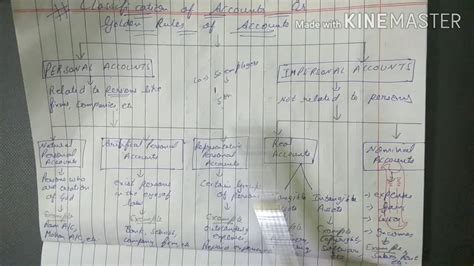 Classification of Accounts Or
Golden Rules of Accounts
Made with KINEMASTER
PERSONAL ACCOUNTS
Related to Persons like
firms, companies etc
IMPERSONAL ACCOUNTS
Not related to persons
Natural
Personal
Accounts
Persons who
are creation
of God
Example
Ram A/c,
Mohan A/c, etc.
Artificial Personal
Accounts
exist persons
in the eyes of
law
Example
Bank, school,
company, firm etc
Representative
Personal
Accounts
Certain group
of persons
Example
Outstanding
expenses
Prepaid expenses
Real
Accounts
Tangible
Assets
Intangible
Assets
Example
Copyright,
Nominal
Accounts
→ expenses
→ Gain
→ Losses
→ Incomes
Example
Salary, Rent